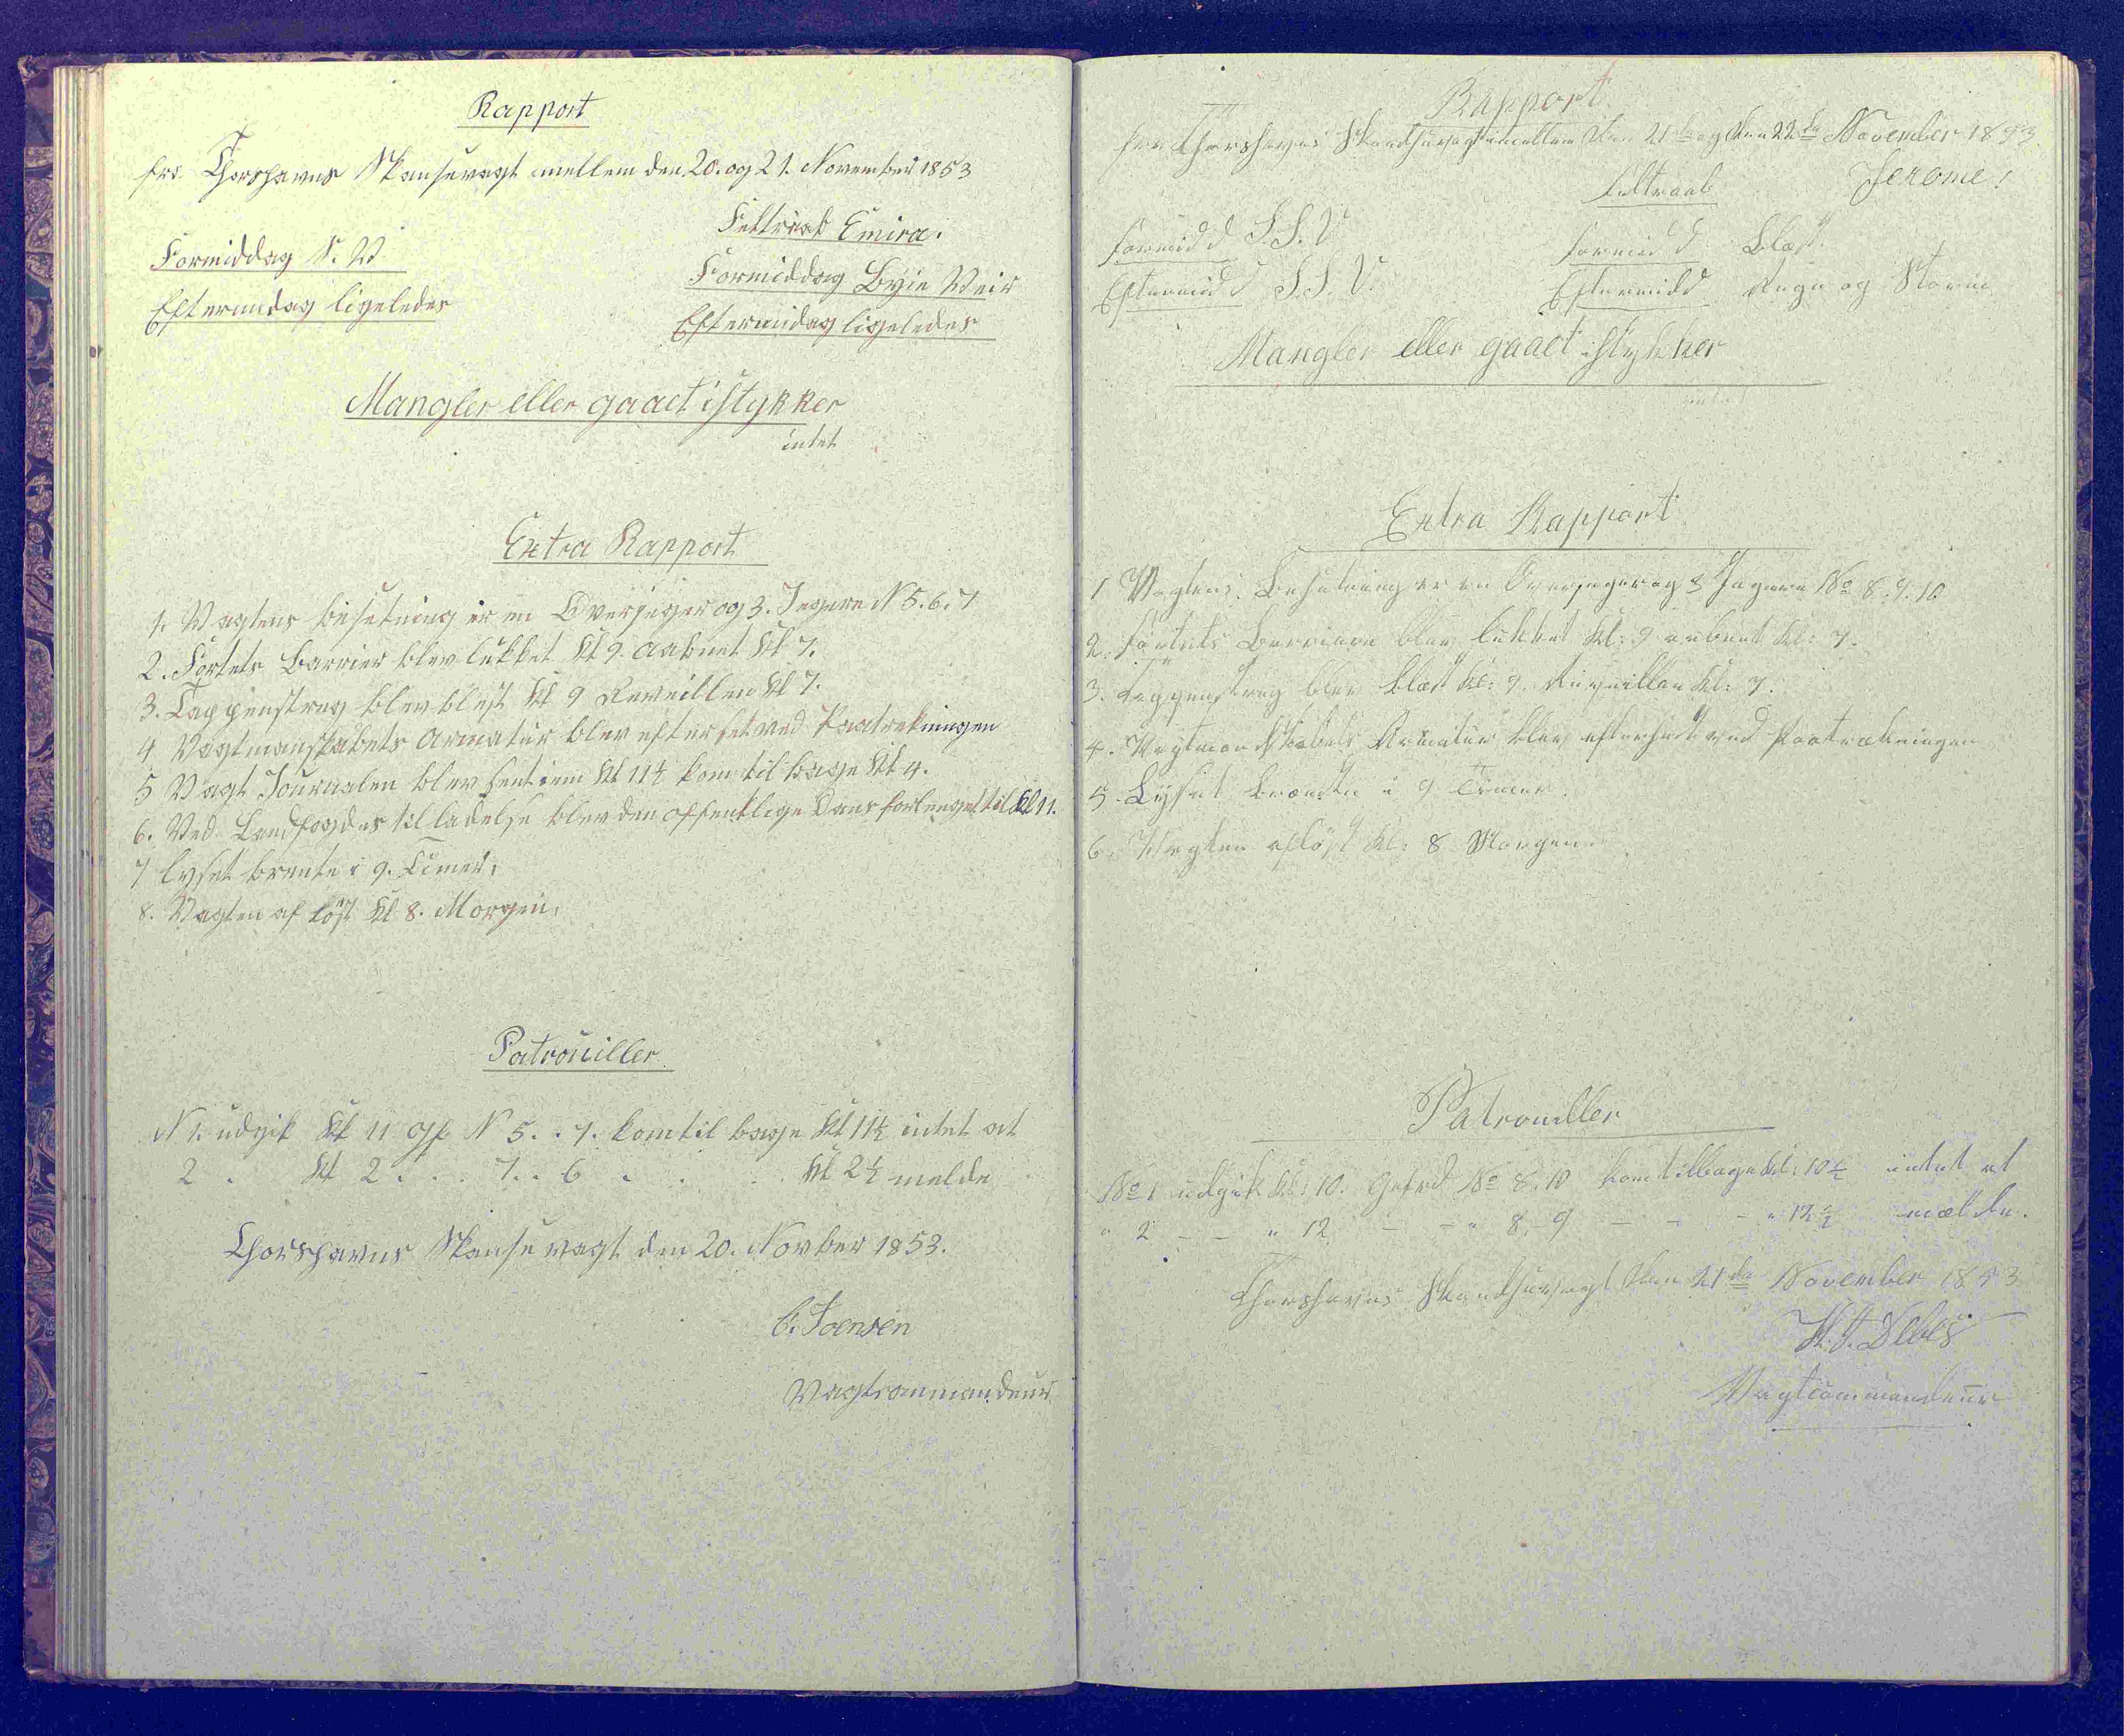 Rapport
fra Thorshavns Skansevagt mellem den 20. og 21. November 1853
Feltraab Emira.
Formiddag S. V.
Formiddag Byie Veir
Eftermidag ligeledes
Eftermidag ligeledes
Mangler eller gaaet istykker
intet
Extra Rapport
1. Vagtens besetning er en Overjeger og 3. Jegere N 5. 6. 7
2. Fortets Barrier blev lukket Kl 9. aabnet Kl 7.
3. Tappenstreg blev blest Kl 9 Reveillen Kl 7.
4 Vagtmanskabets Armatur blev efterset ved Paatrekningen
5 Vagt Journalen blev hent iem Kl 11½ kom til bage Kl 4.
6. Ved Landfogdes til ladelse blev den offentlige Dans forlenget til Kl 11.
7 lyset brente i 9. Timer.
8. Vagten af löst Kl 8. Morgen.
Patrouiller
N 1. udgik Kl 11 Gf N 5. . 7. kom til bage Kl 11½ intet at
2 . Kl 2 . . . 7. . 6 . . . Kl 2½ melde
Thorshavns Skanse vagt den 20. Novber 1853.
C. Joensen
Vagtcommandeur
Rapport
fra Thorshavns Skandsevagt imellem den 21de og den 22de November 1853.
Feltraab Jerome!
Formidd S. S. V. Formidd Blæst
Eftermidd S. S. V. Eftermidd Regn og Storm
Mangler eller gaaet istykker
intet
Extra Rapport
1 Vagtens Besætning er en Overjeger og 3 Jægere No 8. 9. 10
2. Fortets Barriere blev lukket Kl: 9 aabnet Kl: 7.
3. Tappenstreg blev blæst Kl: 9. Reveillen Kl: 7.
4. Vagtmandskabets Armatur blev efterseet ved Paatrækningen
5. Lyset brændte i 9 Timer.
6. Vagten aflöst Kl: 8 Morgen.
Patrouiller
No 1 udgik Kl: 10. Gefrd No 8. 10 kom tilbage Kl: 10½ intet at
" 2 - - " 12 - - " 8 - 9 - - - " 12½ melde.
Thorshavns Skandsevagt den 21de November 1853
Debes
Vagtcommandeur